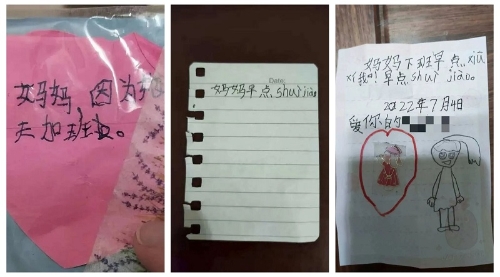 妈妈，因为
去加班
Date:
妈妈早点shuì jiào。
妈妈下班早点xiū
xi 我 早点shuì jiào。
2022年7月4日
爱你的